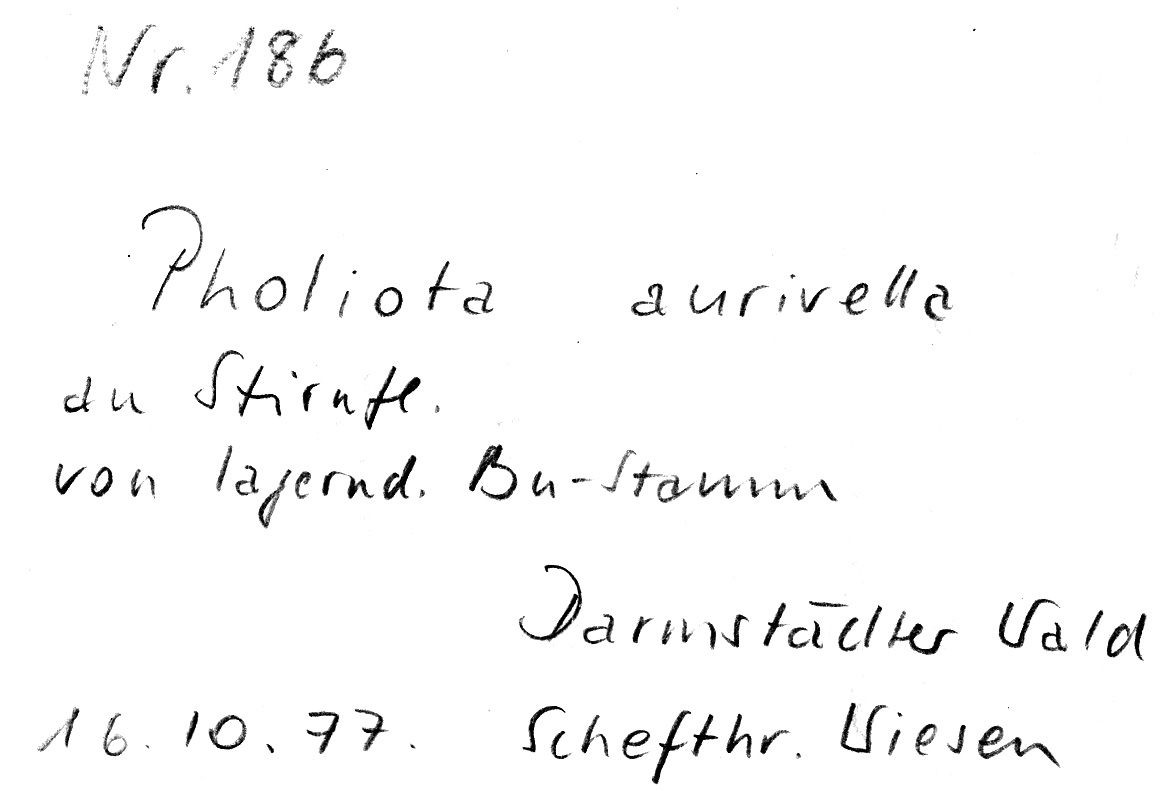 Nr. 186
Pholiota aurivella
an Stirnfl.
von lagernd. Bu-Stamm
Darmstädter Wald
16.10.77. Schefthr. Wiesen